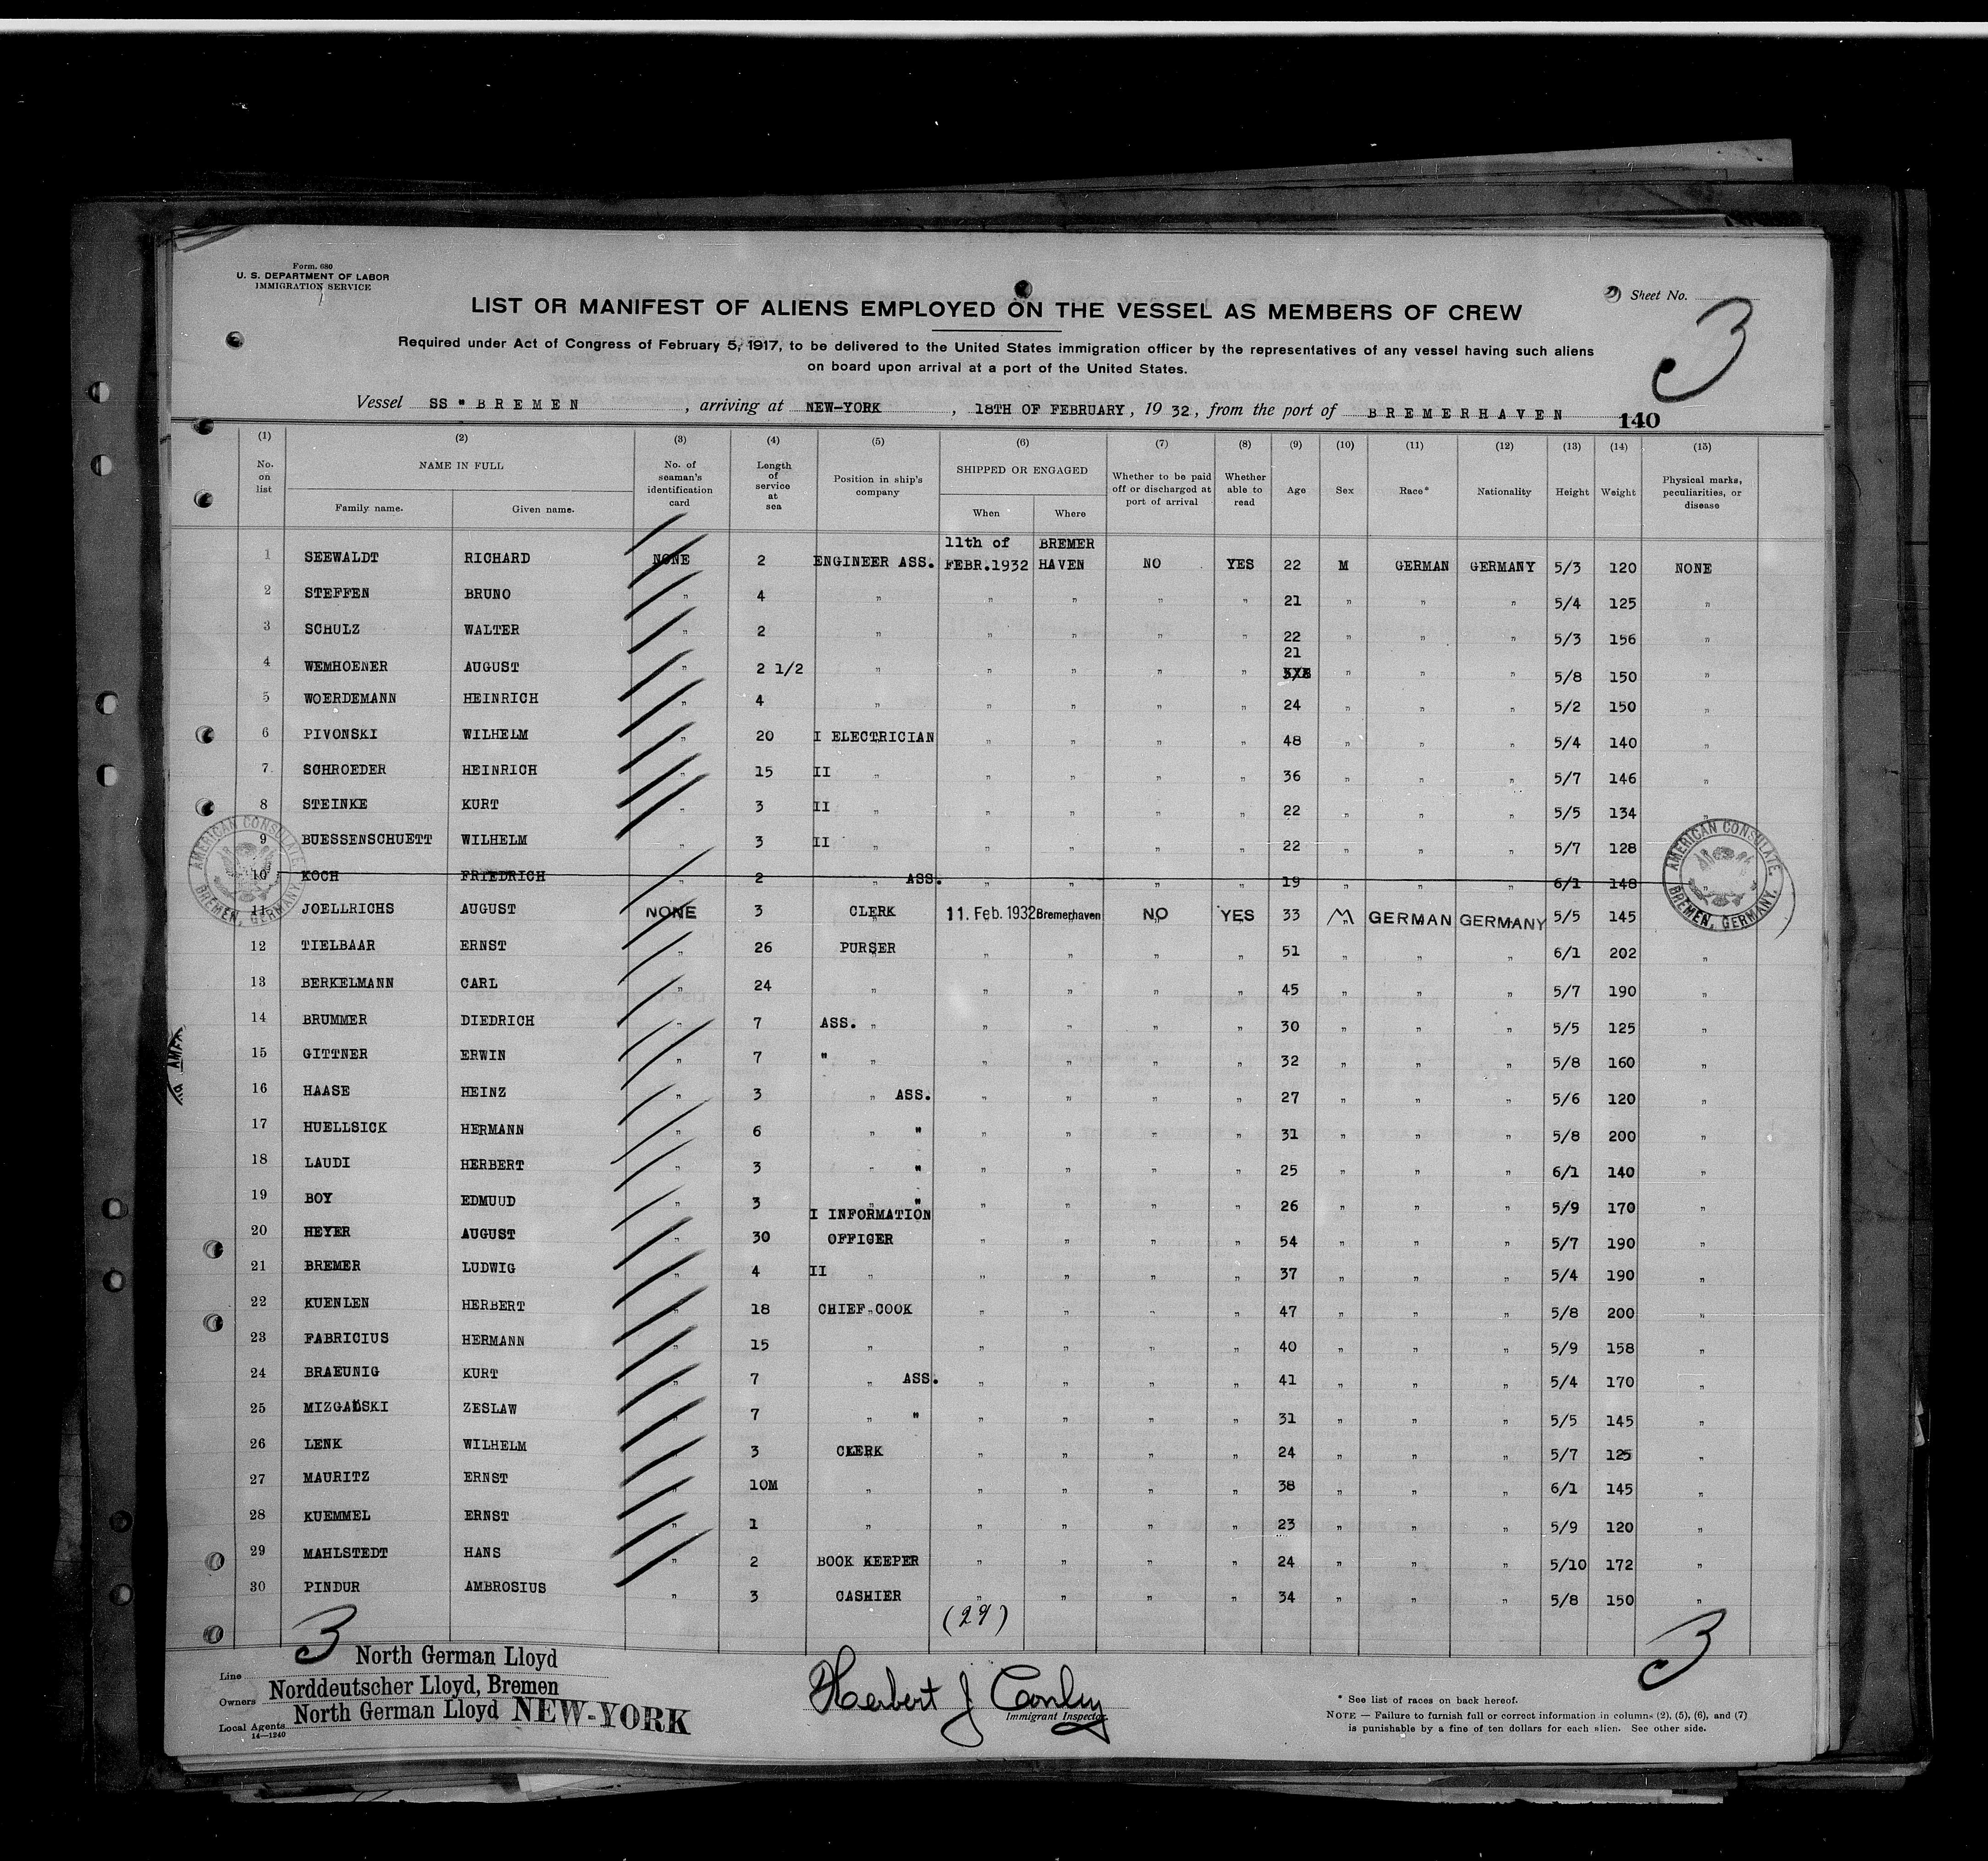 Form. 680
U. S. DEPARTMENT OF LABOR
IMMIGRATION SERVICE
Sheet No. 3
LIST OR MANIFEST OF ALIENS EMPLOYED ON THE VESSEL AS MEMBERS OF CREW
Required under Act of Congress of February 5, 1917, to be delivered to the United States immigration officer by the representatives of any vessel having such aliens
on board upon arrival at a port of the United States.
Vessel SS " BREMEN , arriving at NEW-YORK , 18TH OF FEBRUARY, 19 32, from the port of BREMERHAVEN 140
(1) (2) (3) (4) (5) (6) (7) (8) (9) (10) (11) (12) (13) (14) (15)
No. on list NAME IN FULL Family name. Given name. No. of seaman's identification card Length of service at sea Position in ship's company SHIPPED OR ENGAGED When Where Whether to be paid off or discharged at port of arrival Whether able to read Age Sex Race* Nationality Height Weight Physical marks, peculiarities, or disease
1 SEEWALDT RICHARD NONE 2 ENGINEER ASS. 11th of FEBR.1932 BREMER HAVEN NO YES 22 M GERMAN GERMANY 5/3 120 NONE
2 STEFFEN BRUNO " 4 " " " " " 21 " " " 5/4 125 "
3 SCHULZ WALTER " 2 " " " " " 22 " " " 5/3 156 "
4 WEMHOENER AUGUST " 2 1/2 " " " " " 21 " " " 5/8 150 "
5 WOERDEMANN HEINRICH " 4 " " " " " 24 " " " 5/2 150 "
6 PIVONSKI WILHELM " 20 I ELECTRICIAN " " " " 48 " " " 5/4 140 "
7 SCHROEDER HEINRICH " 15 II " " " " " 36 " " " 5/7 146 "
8 STEINKE KURT " 3 II " " " " " 22 " " " 5/5 134 "
9 BUESSENSCHUETT WILHELM " 3 II " " " " " 22 " " " 5/7 128
10 KOCH FRIEDRICH " 2 " ASS. " " " " 19 " " " 6/1 148 "
11 JOELLRICHS AUGUST NONE 3 CLERK 11. Feb. 1932 Bremerhaven NO YES 33 M GERMAN GERMANY 5/5 145
12 TIELBAAR ERNST " 26 PURSER " " " " 51 " " " 6/1 202 "
13 BERKELMANN CARL " 24 " " " " " 45 " " " 5/7 190 "
14 BRUMMER DIEDRICH " 7 ASS. " " " " " 30 " " " 5/5 125 "
15 GITTNER ERWIN " 7 " " " " " " 32 " " " 5/8 160 "
16 HAASE HEINZ " 3 " ASS. " " " " 27 " " " 5/6 120 "
17 HUELLSICK HERMANN " 6 " " " " " " 31 " " " 5/8 200 "
18 LAUDI HERBERT " 3 " " " " " " 25 " " " 6/1 140 "
19 BOY EDMUUD " 3 " " " " " " 26 " " " 5/9 170 "
20 HEYER AUGUST " 30 I INFORMATION OFFICER " " " " 54 " " " 5/7 190 "
21 BREMER LUDWIG " 4 II " " " " " 37 " " " 5/4 190 "
22 KUENLEN HERBERT " 18 CHIEF COOK " " " " 47 " " " 5/8 200 "
23 FABRICIUS HERMANN " 15 " " " " " 40 " " " 5/9 158 "
24 BRAEUNIG KURT " 7 " ASS. " " " " 41 " " " 5/4 170 "
25 MIZGALSKI ZESLAW " 7 " " " " " " 31 " " " 5/5 145 "
26 LENK WILHELM " 3 CLERK " " " " 24 " " " 5/7 125 "
27 MAURITZ ERNST " 10M " " " " " 38 " " " 6/1 145 "
28 KUEMMEL ERNST " 1 " " " " " 23 " " " 5/9 120 "
29 MAHLSTEDT HANS " 2 BOOK KEEPER " " " " 24 " " " 5/10 172 "
30 PINDUR AMBROSIUS " 3 CASHIER " " " " 34 " " " 5/8 150 "
AMERICAN CONSULATE BREMEN, GERMANY.
AMERICAN CONSULATE BREMEN, GERMANY.
(29)
3
3
Line North German Lloyd
Owners Norddeutscher Lloyd, Bremen
Local Agents North German Lloyd NEW-YORK
14—1240
Herbert J Conley
Immigrant Inspector.
* See list of races on back hereof.
NOTE — Failure to furnish full or correct information in columns (2), (5), (6), and (7)
is punishable by a fine of ten dollars for each alien. See other side.